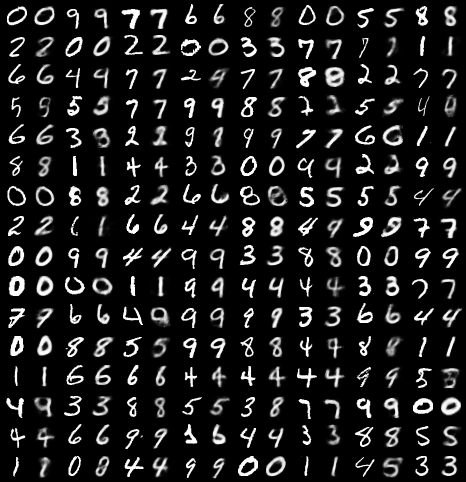 0 0 9 9 7 7 6 6 8 8 0 0 5 5 8 8
2 2 0 0 2 2 0 0 3 3 7 7 1 1
6 6 4 9 7 7 2 4 7 7 8 8 2 2 7 7
5 9 5 5 7 7 9 9 8 8 2 2 5 5 4
6 6 3 3 2 2 9 8 9 9 7 7 6 6 1 1
8 8 1 1 4 4 3 3 0 0 9 9 2 2 9 9
0 0 8 8 2 2 6 6 8 8 5 5 5 5 4 4
2 2 1 6 6 4 4 8 8 4 9 9 9 7 7
0 0 9 9 4 4 9 9 3 3 8 8 0 0 9 9
0 0 0 0 1 1 9 9 4 4 4 4 3 3 7 7
7 9 6 6 4 9 9 9 9 3 3 6 6 4 4
0 0 8 8 5 5 9 9 8 8 4 4 8 8 1 1
1 1 6 6 6 6 4 4 4 4 4 4 9 9 5 5
4 9 3 3 8 8 5 5 3 8 7 7 9 9 0 0
4 4 6 6 9 9 1 6 4 4 3 3 8 8 5 5
1 1 0 8 4 4 9 9 0 0 1 1 4 5 3 3